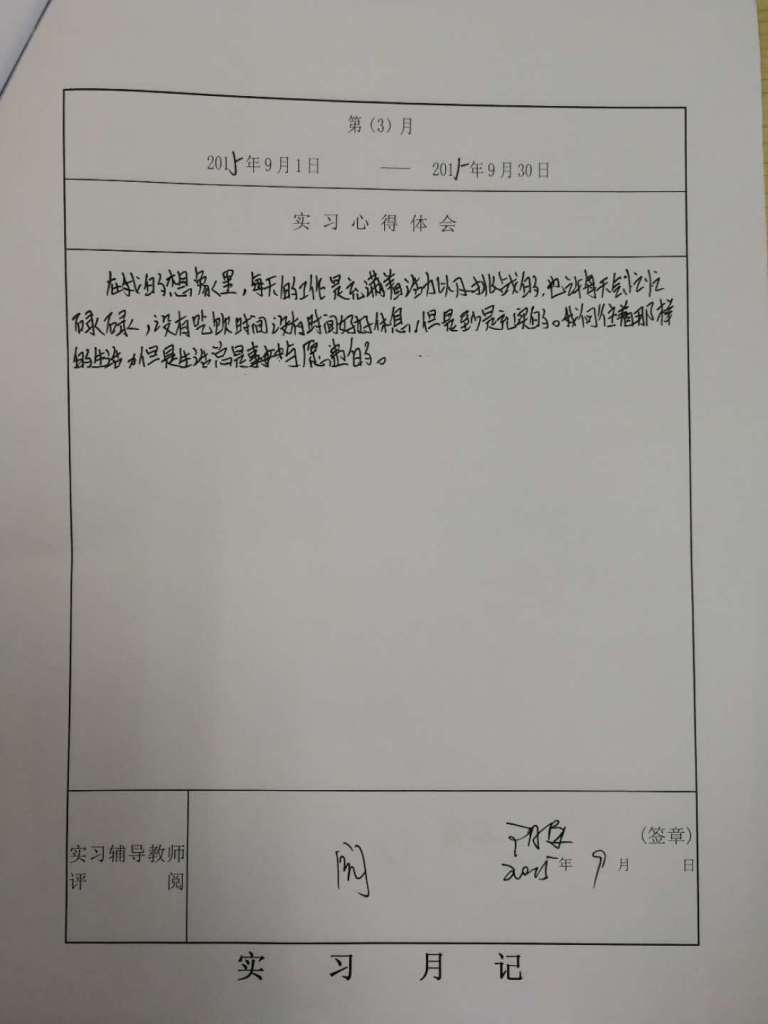 第(3)月
2015年9月1日 —— 2015年9月30日
实习心得体会
在我的想象里,每天的工作是充满着活力以及挑战的,也许每天会忙忙
碌碌,没有吃饭时间没有时间好好休息,但是至少是充实的。我向往着那样
的生活,但是生活总是事与愿违的。
实习辅导教师
评阅
阅
(签章)
2015年9月 日
实习月记